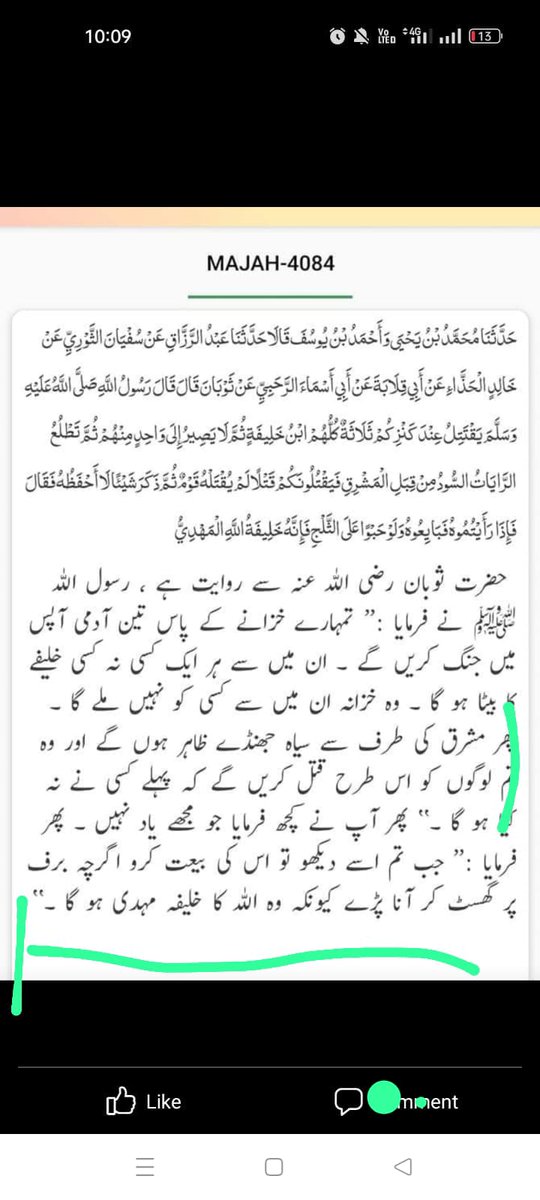 10:09
Vo LTED 4G 13
MAJAH-4084
حَدَّثَنَا مُحَمَّدُ بْنُ يَحْيَى وَأَحْمَدُ بْنُ يُوسُفَ قَالَا حَدَّثَنَا عَبْدُ الرَّزَّاقِ عَنْ سُفْيَانَ الثَّوْرِيِّ عَنْ
خَالِدٍ الْحَذَّاءِ عَنْ أَبِي قِلَابَةَ عَنْ أَبِي أَسْمَاءَ الرَّحَبِيِّ عَنْ ثَوْبَانَ قَالَ قَالَ رَسُولُ اللَّهِ صَلَّى اللَّهُ عَلَيْهِ
وَسَلَّمَ يَقْتَتِلُ عِنْدَ كَنْزِكُمْ ثَلَاثَةٌ كُلُّهُمْ ابْنُ خَلِيفَةٍ ثُمَّ لَا يَصِيرُ إِلَى وَاحِدٍ مِنْهُمْ ثُمَّ تَطْلُعُ
الرَّايَاتُ السُّودُ مِنْ قِبَلِ الْمَشْرِقِ فَيَقْتُلُونَكُمْ قَتْلًا لَمْ يُقْتَلْهُ قَوْمٌ ثُمَّ ذَكَرَ شَيْئًا لَا أَحْفَظُهُ فَقَالَ
فَإِذَا رَأَيْتُمُوهُ فَبَايِعُوهُ وَلَوْ حَبْوًا عَلَى الثَّلْجِ فَإِنَّهُ خَلِيفَةُ اللَّهِ الْمَهْدِيُّ
حضرت ثوبان رضی اللہ عنہ سے روایت ہے ، رسول اللہ
ﷺ نے فرمایا :’’ تمہارے خزانے کے پاس تین آدمی آپس
میں جنگ کریں گے ۔ ان میں سے ہر ایک کسی نہ کسی خلیفے
کا بیٹا ہو گا ۔ وہ خزانہ ان میں سے کسی کو نہیں ملے گا ۔
پھر مشرق کی طرف سے سیاہ جھنڈے ظاہر ہوں گے اور وہ
تم لوگوں کو اس طرح قتل کریں گے کہ پہلے کسی نے نہ
کیا ہو گا ۔‘‘ پھر آپ نے کچھ فرمایا جو مجھے یاد نہیں ۔ پھر
فرمایا :’’ جب تم اسے دیکھو تو اس کی بیعت کرو اگرچہ برف
پر گھسٹ کر آنا پڑے کیونکہ وہ اللہ کا خلیفہ مہدی ہو گا ۔‘‘
Like
Comment